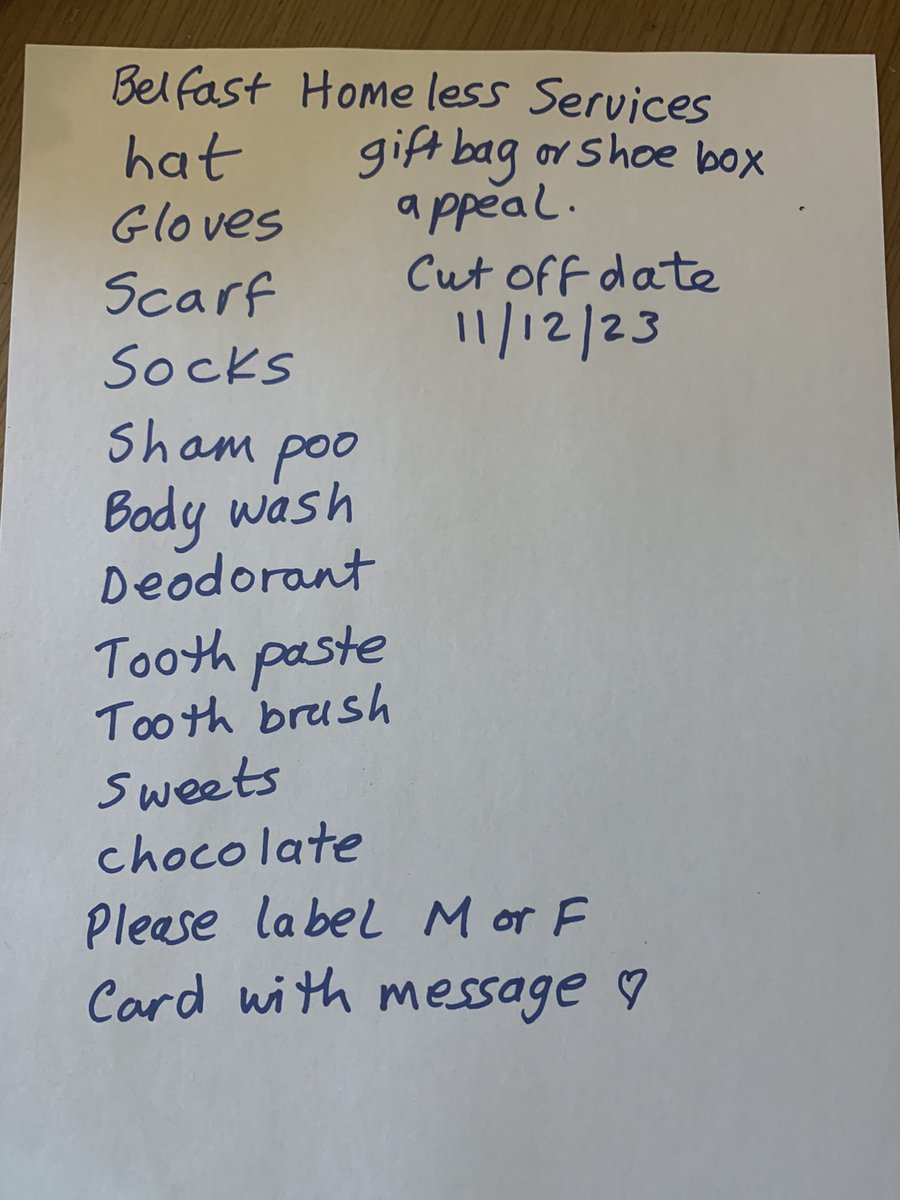 Belfast Homeless Services
gift bag or shoe box
appeal.
Cut off date
11/12/23
hat
Gloves
Scarf
Socks
Sham poo
Body wash
Deodorant
Tooth paste
Tooth brush
Sweets
chocolate
Please label M or F
Card with message ♡